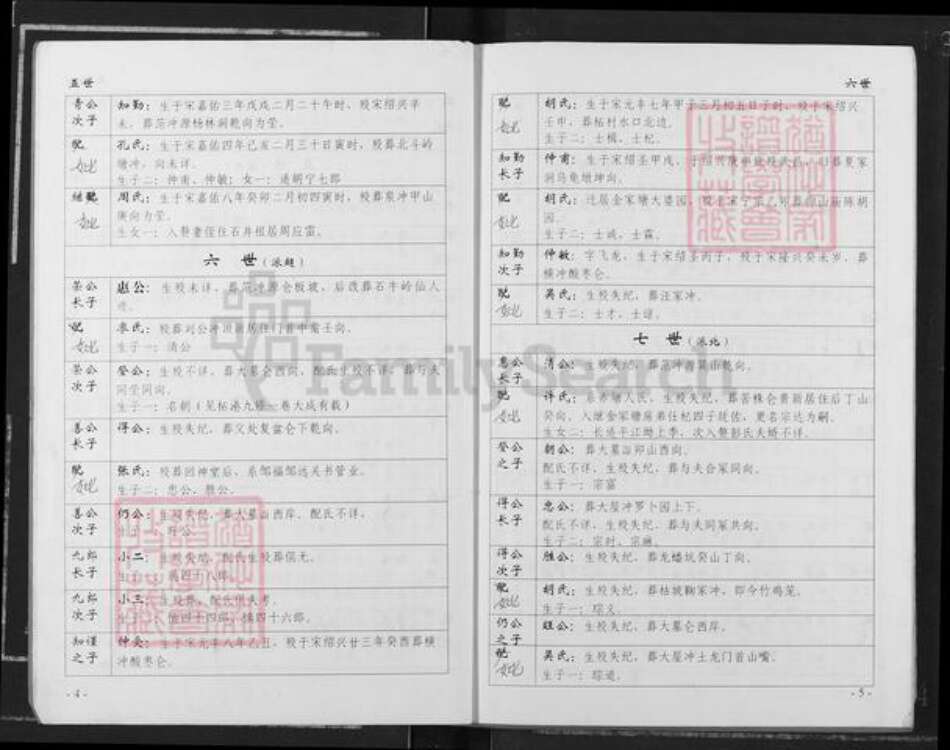 五世
青公
次子
知勤：生于宋嘉佑三年戊戌二月二十午时，殁宋绍兴辛
未，葬范冲源杨林洞乾向为茔。
配
妣
孔氏：生于宋嘉佑四年己亥二月三十日寅时，殁葬北斗岭
塘冲，向未详。
生子二：仲甫、仲敏；女一：适胡宁七郎
继配
妣
周氏：生于宋嘉佑八年癸卯二月初四寅时，殁葬泉冲甲山
庚向为茔。
生女一：入赘妻侄住石井祖居周应雷。
六 世（派赵）
荣公
长子
惠公：生殁未详，葬范冲源仓板坡，后改葬石牛的仙人
配
妣
李氏：殁葬刘公冲
生子一：清公
荣公
次子
登公：生殁不详，葬大墓仑西向，配氏生殁不详，葬与夫
同茔同向。
生子一：名朝（见枯港九经一卷大成有载）
善公
长子
得公：生殁失纪，葬父处复盆仑下乾向。
配
妣
张氏：殁葬回神堂后，
生子二：忠公、胜公。
善公
次子
仍公：生殁失纪，葬大墓山西岸，配氏不详。
九郎
长子
小二：生殁失纪，配氏生殁葬俱无。
九郎
次子
小三：
知谨
之子
仲奂：生于宋元丰八年乙丑，殁于宋绍兴廿三年癸酉葬横
冲酸枣仑。
- 4 -
六世
配
妣
胡氏：生于宋元丰七年甲子三月初五日子时，殁于宋绍兴
壬申，葬枯村水口北边。
生子二：士楫、士杞。
知勤
长子
仲甫：生于宋绍圣甲戌，
洞乌龟墩坤向。
配
妣
胡氏：迁居金家塘大婆园，
园。
生子二：士诚、士霖。
知勤
次子
仲敏：字飞龙，生于宋绍圣丙子，殁于宋隆兴癸未岁，葬
横冲酸枣仑。
配
妣
吴氏：生殁失纪，葬汪家冲。
生子二：士才、士谅。
七 世（派北）
惠公
长子
清公：生殁失纪，葬范冲源巽山乾向。
配
妣
许氏：系希塘人氏，生殁失纪，葬苦株仑黄丽居住后丁山
癸向，入继金家塘庶弟仕杞四子廷佐，更名宗达为嗣。
生女二：长适平江坳上李，次入赘彭氏夫婿不详。
登公
之子
朝公：葬大墓山卯山西向。
配氏不详，生殁失纪，葬与夫合冢同向。
生子一：宗富
得公
长子
忠公：葬大屋冲罗卜园上下。
配氏不详，生殁失纪，葬与夫同冢共向。
生子二：宗时、宗麻。
得公
次子
胜公：生殁失纪，葬龙蟠坑癸山丁向。
配
妣
胡氏：生殁失纪，葬枯坡鞠家冲，即今竹鸡笼。
生子一：琮义。
仍公
之子
旺公：生殁失纪，葬大墓仑西岸。
配
妣
吴氏：生殁失纪，葬大屋冲土龙门首山嘴。
生子一：琮道。
- 5 -
FamilySearch